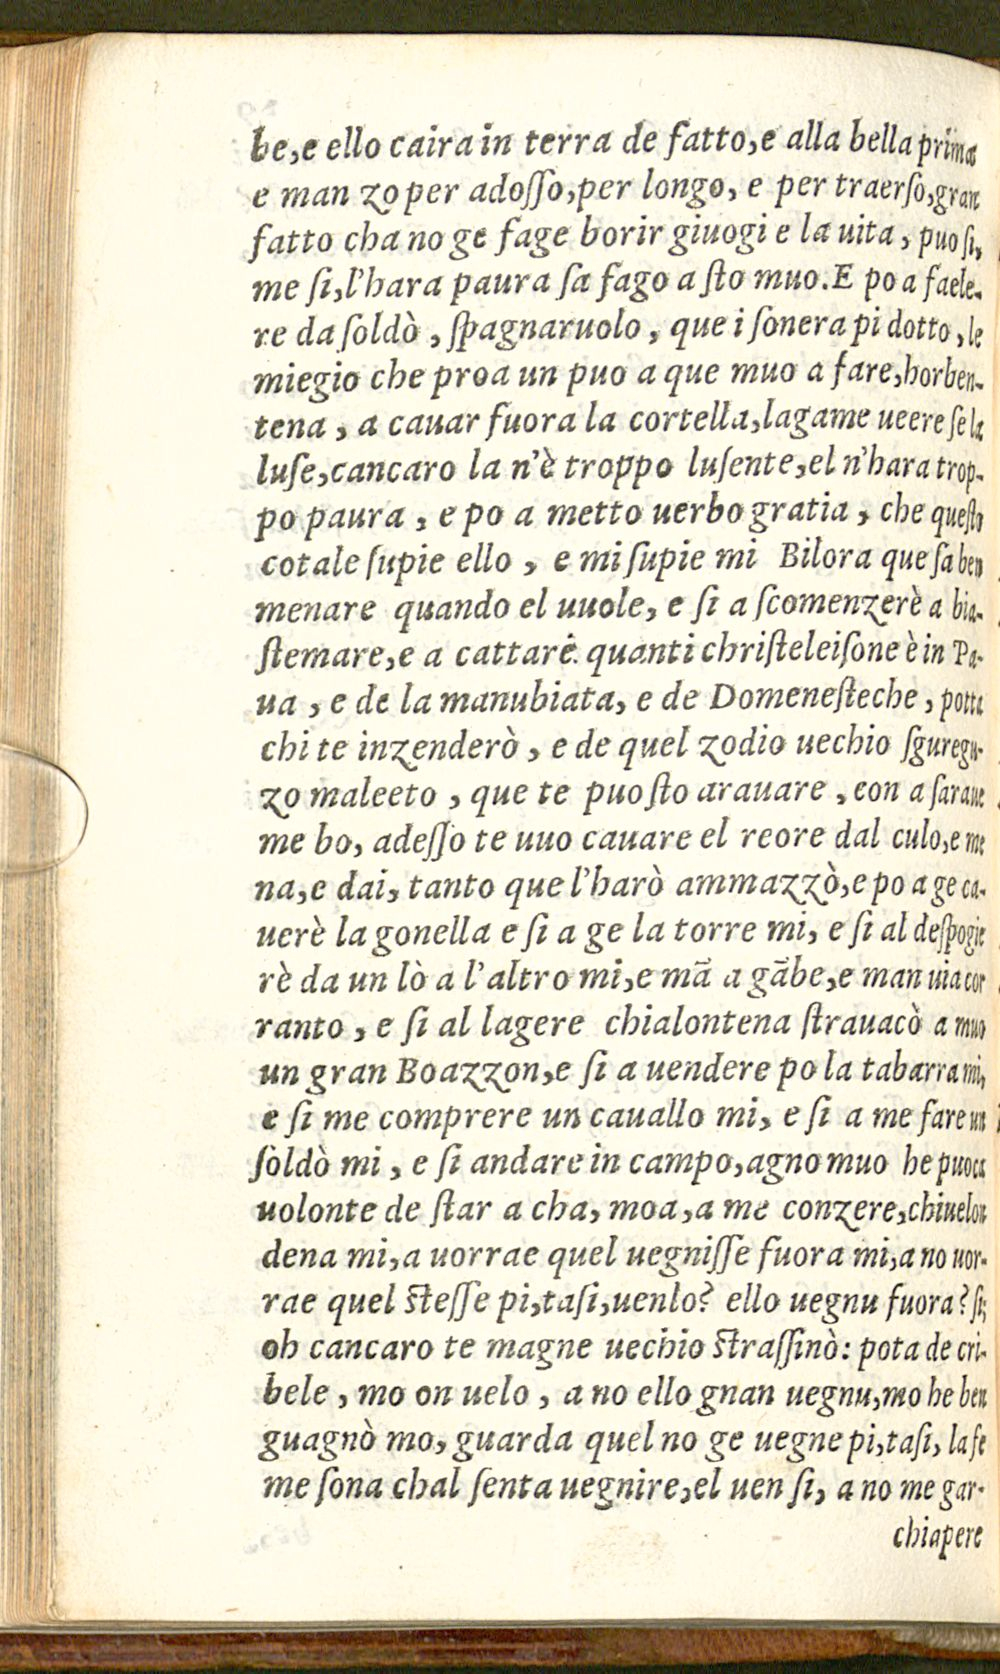 be,e ello caira in terra de fatto,e alla bella prima
e man zo per adoſſo,per longo, e per traerſo,gran
fatto cha no ge fage borir giuogi e la uita, puo ſi,
me ſi,l'hara paura ſa fago a ſto muo.E po a faele-
re da ſoldò, ſpagnaruolo, que i ſonera pi dotto, le
miegio che proa un puo a que muo a fare,horben-
tena, a cauar fuora la cortella,lagame ueere ſe la
luſe,cancaro la n'è troppo luſente,el n'hara trop-
po paura, e po a metto uerbo gratia, che queſto
cotale ſupie ello, e mi ſupie mi Bilora que ſa ben
menare quando el uuole, e ſi a ſcomenzerè a bia-
ſtemare,e a cattarè quanti chriſteleiſone è in Pa-
ua, e de la manubiata, e de Domeneſteche, potta
chi te inzenderò, e de quel zodio uechio ſguregu-
zo maleeto, que te puoſto arauare, con a ſaraue
me bo, adeſſo te uuo cauare el reore dal culo,e me
na,e dai, tanto que l'harò ammazzò,e po a ge ca-
uerè la gonella e ſi a ge la torre mi, e ſi al deſpogie
rè da un lò a l'altro mi,e mā a gābe,e man uia cor
ranto, e ſi al lagere chialontena ſtrauacò a muo
un gran Boazzon,e ſi a uendere po la tabarra mi,
e ſi me comprere un cauallo mi, e ſi a me fare un
ſoldò mi, e ſi andare in campo,agno muo he puoca
uolonte de ſtar a cha, moa,a me conzere,chiuelon
dena mi,a uorrae quel uegniſſe fuora mi,a no uor-
rae quel ſteſſe pi,taſi,uenlo? ello uegnu fuora? ſi;
oh cancaro te magne uechio ſtraſſinò: pota de cri-
bele, mo on uelo, a no ello gnan uegnu,mo he ben
guagnò mo, guarda quel no ge uegne pi,taſi, la fe
me ſona chal ſenta uegnire,el uen ſi, a no me gar-
chiapere